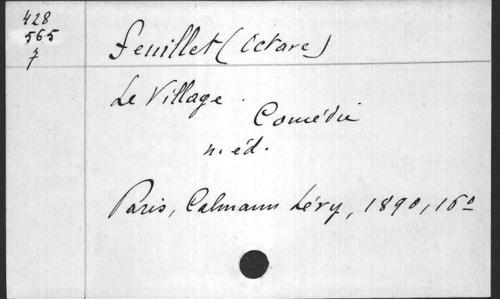 428
565
7
Feuillet (Octave)
Le Village.
Comédie
n. éd.
Paris, Calmann Lévy, 1890, 16o